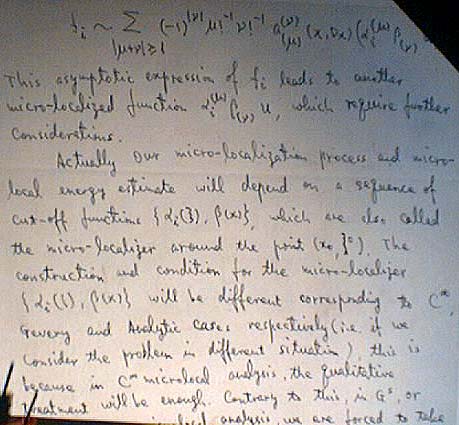 f_i ~ Σ_{|μ+ν|≥1} (-1)^{|ν|} μ!^{-1} ν!^{-1} a^{(ν)}_{(μ)} (x, Dx) (α_i^{(μ)} β_{(ν)}
This asymptotic expression of f_i leads to another
micro-localized function α_i^{(μ)} β_{(ν)} u, which require further
Considerations.
Actually our micro-localization process and micro-
local energy estimate will depend on a sequence of
cut-off functions {α_i(ξ), β(x)}, which are also called
the micro-localizer around the point (x_0, ξ^0). The
construction and condition for the micro-localizer
{α_i(ξ), β(x)} will be different corresponding to C^∞,
Gevrey and Analytic cases respectively (i.e. if we
Consider the problem in different situation), this is
because in C^∞ microlocal analysis, the qualitative
treatment will be enough. Contrary to this, in G^s, or
local analysis, we are forced to take